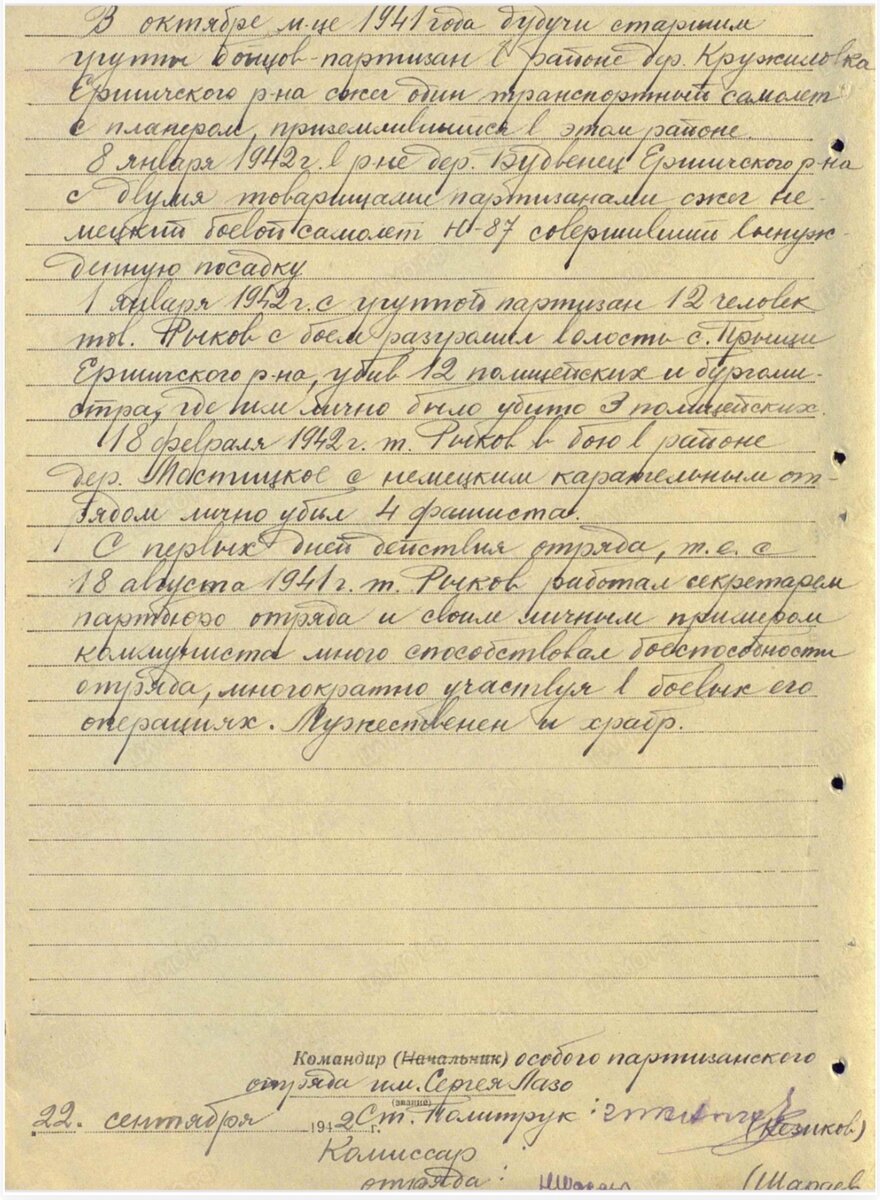 В октябре м-це 1941 года будучи старшим
группы бойцов-партизан в районе дер. Кружиловка
Ершичского р-на сжег один транспортный самолет
с планером, приземлившийся в этом районе.
8 января 1942 г. в р-не дер. Будвенец Ершичского р-на
с двумя товарищами партизанами сжег не-
мецкий боевой самолет Ю-87 совершивший вынуж-
денную посадку
1 января 1942 г. с группой партизан 12 человек
тов. Рычков с боем разгромил волость с. Прыщи
Ершичского р-на, убив 12 полицейских и бургоми-
стра, где им лично было убито 3 полицейских.
18 февраля 1942 г. т. Рычков в бою в районе
дер. Мостицкое с немецким карательным от-
рядом лично убил 4 фашиста.
С первых дней действия отряда, т.е. с
18 августа 1941 г. т. Рычков работал секретарем
партбюро отряда и своим личным примером
коммуниста много способствовал боеспособности
отряда, многократно участвуя в боевых его
операциях. Мужественен и храбр.
Командир (Начальник) особого партизанского
отряда им. Сергея Лазо
(звание)
22. сентября 1942 г. Ст. Политрук: (Казиков)
Комиссар
отряда: (Шараев